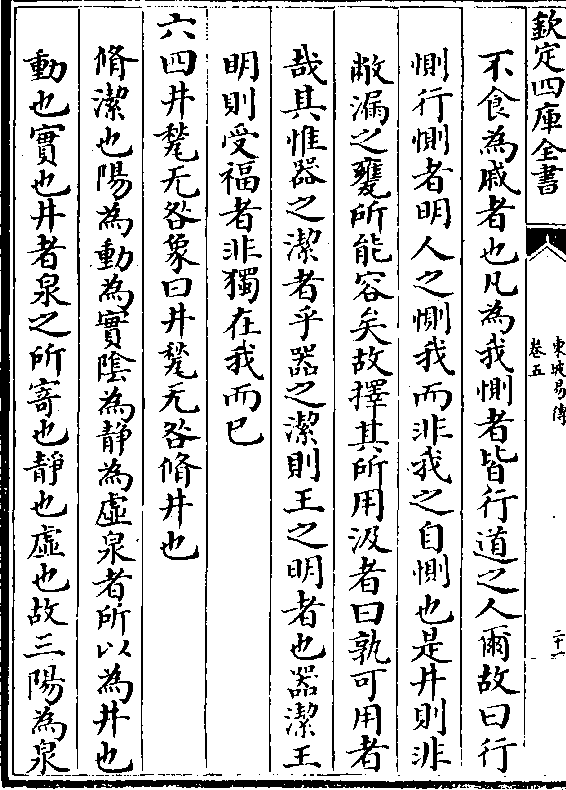 欽定四庫全書
東坡易傳
卷五
二十一
不食為戚者也凡為我惻者皆行道之人爾故曰行
惻行惻者明人之惻我而非我之自惻也是井則非
敝漏之甕所能容矣故擇其所用汲者曰孰可用者
哉其惟器之潔者乎器之潔則王之明者也器潔王
明則受福者非獨在我而已
六四井甃无咎象曰井甃无咎脩井也
脩潔也陽為動為實陰為静為虚泉者所以為井也
動也實也井者泉之所寄也靜也虛也故三陽為泉